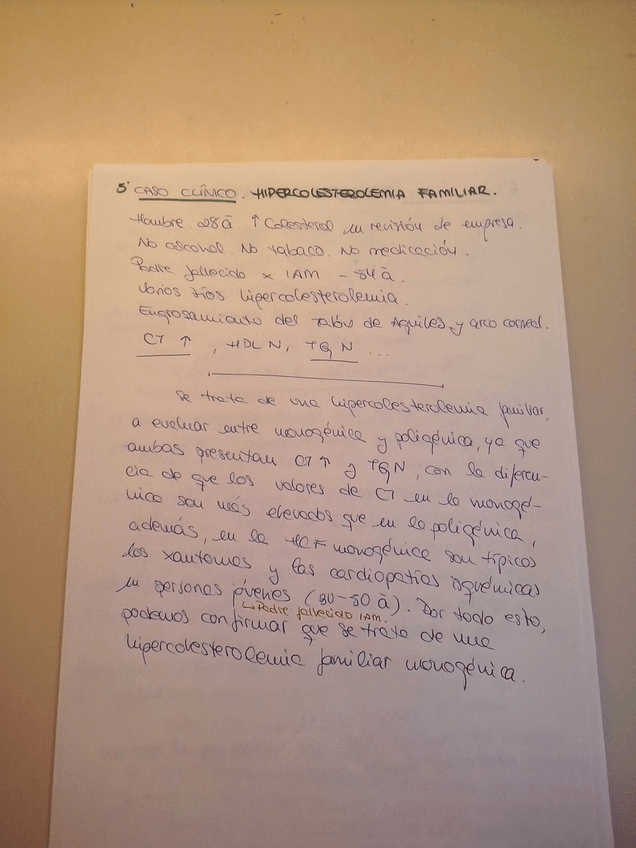 5· CASO CLÍNICO. HIPERCOLESTEROLEMIA FAMILIAR.
Hombre 28 ā ↑ Colesterol en revisión de empresa.
No alcohol. No tabaco. No medicación.
Padre fallecido x IAM - 54 ā.
Varios tíos hipercolesterolemia.
Engrosamiento del talón de Aquiles y arco corneal.
CT ↑, HDL N, TG N ...
Se trata de una hipercolesterolemia familiar,
a evaluar entre monogénica y poligénica, ya que
ambas presentan CT ↑ y TG N, con la diferen-
cia de que los valores de CT en la monogé-
nica son más elevados que en la poligénica,
además, en la HCF monogénica son típicos
los xantomas y las cardiopatías isquémicas
en personas jóvenes (30-50 ā). Por todo esto,
↳ Padre fallecido IAM.
podemos confirmar que se trata de una
hipercolesterolemia familiar monogénica.